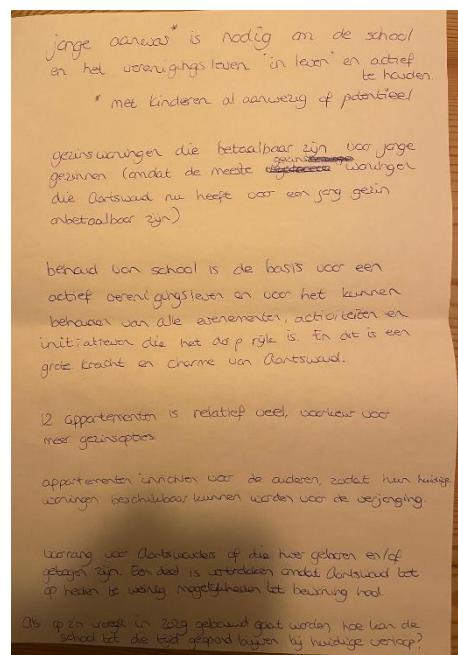 jonge aanwas* is nodig om de school
en het verenigingsleven 'in leven' en actief
te houden.
* met kinderen al aanwezig of potentieel
gezinswoningen die betaalbaar zijn voor jonge
gezinnen (omdat de meeste gezins woningen
die Aartswoud nu heeft voor een jong gezin
onbetaalbaar zijn)
behoud van school is de basis voor een
actief verenigingsleven en voor het kunnen
behouden van alle evenementen, activiteiten en
initiatieven die het dorp rijk is. En dit is een
grote kracht en charme van Aartswoud.
12 appartementen is relatief veel, voorkeur voor
meer gezinsopties
appartementen inrichten voor de ouderen, zodat hun huidige
woningen beschikbaar kunnen worden voor de verjonging.
Voorrang voor Aartswouders of die hier geboren en/of
getogen zijn. Een deel is vertrokken omdat Aartswoud tot
op heden te weinig mogelijkheden tot bewoning had.
Als op z'n vroegst in 2029 gebouwd gaat worden, hoe kan de
school tot die tijd geopend blijven bij huidige verloop?